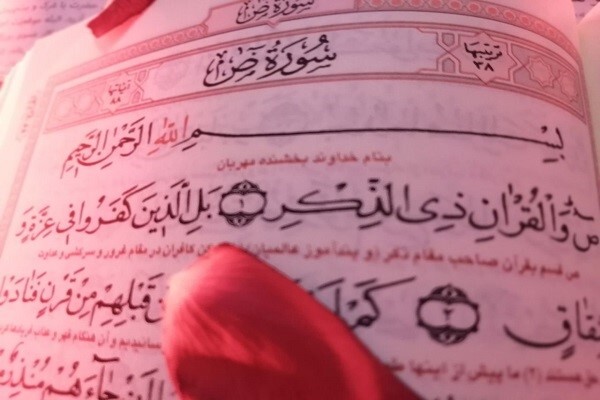 سورة ص
سُورَةُ صٓ
ترتيبها ٣٨
آياتها ٨٨
بِسْمِ اللَّهِ الرَّحْمَٰنِ الرَّحِيمِ
بنام خداوند بخشنده مهربان
صٓ وَالْقُرْآنِ ذِي الذِّكْرِ ١ بَلِ الَّذِينَ كَفَرُوا فِي عِزَّةٍ وَ
ص قسم بقرآن صاحب مقام ذکر (و پندآموز عالمیان کافران در مقام غرور و سرکشی و عداوت
شِقَاقٍ ٢ كَمْ قَبْلِهِم مِّن قَرْنٍ فَنَادَوا
حق هستند (٢) ما پیش از اینها
جَاءَهُم مُّنذِرٌ